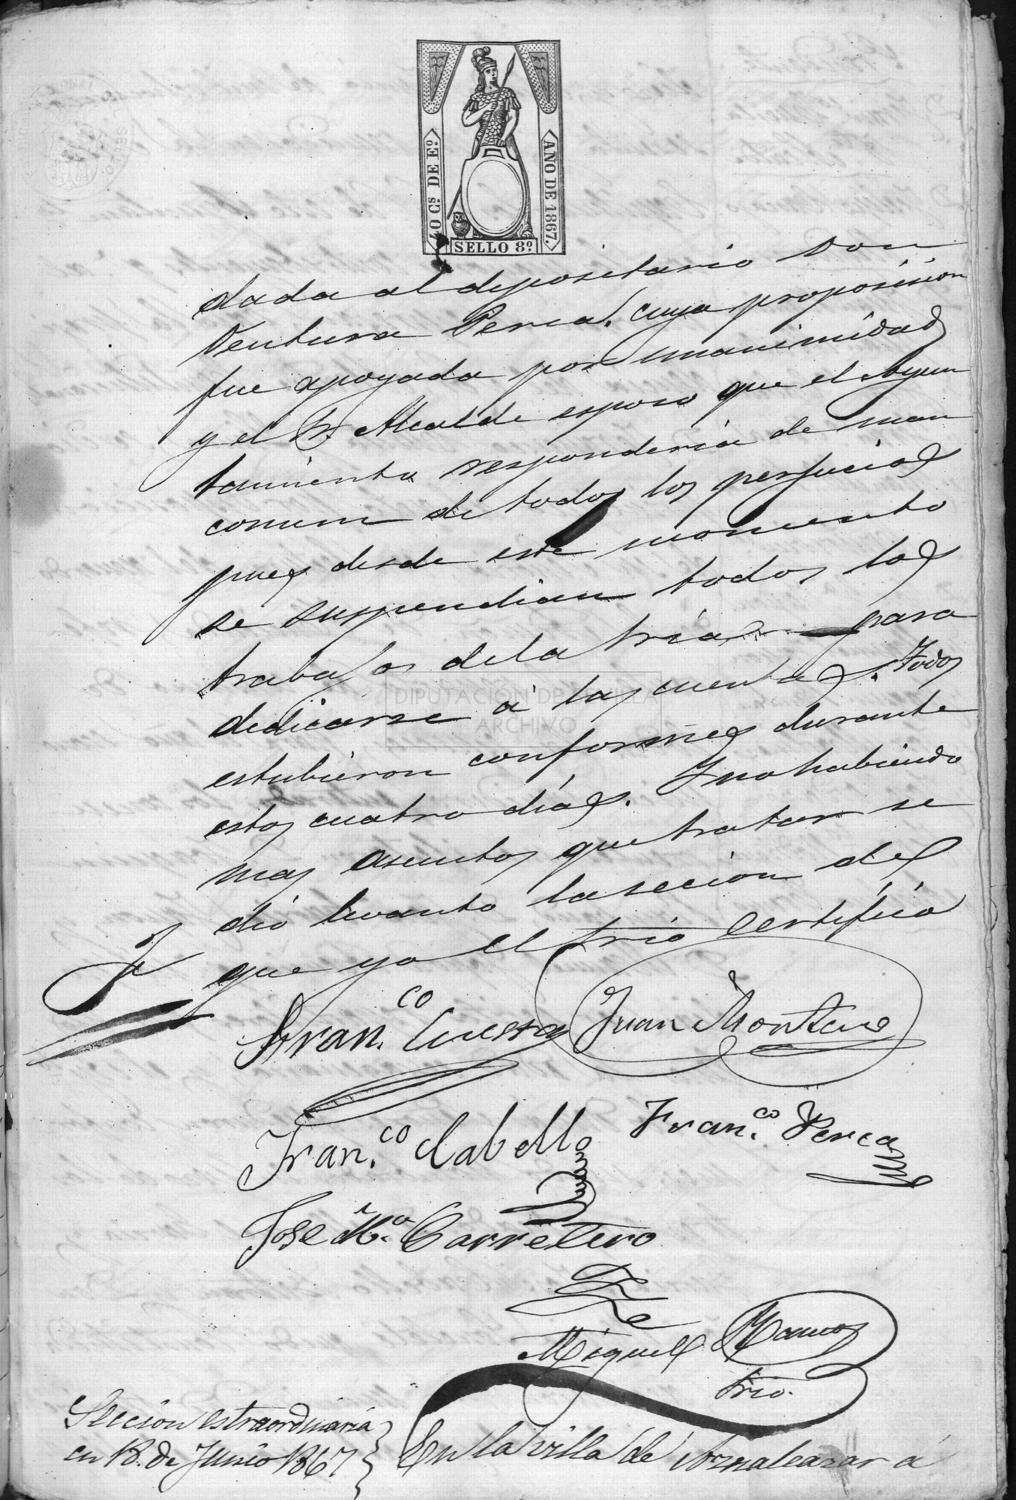 40 Cs DE Eo
AÑO DE 1867.
SELLO 8º
dada al depositario Don
Ventura Perea, cuya proposision
fue apoyada por unanimidad
y el Sr. Alcalde espuso que el Ayun
tamiento responderia de man
comun de todos los perjucios
pues desde este momento
se suspendian todos los
trabajos de la Sria para
dedicarse á las cuentas. Todos
estubieron conformes durante
estos cuatro dias. Y no habiendo
mas asuntos que tratar se
dió levanto la secion de
que yo el Srio Certifico
Franco Cuesta Juan Montero
Franco Cabello Franco Perea
Jose Ma Carretero
Miguel Ramos
Srio.
Secion estraordinaria
en 18 de Junio 1867
En la villa de Aznalcazar á
DIPUTACION DE SEVILLA
ARCHIVO